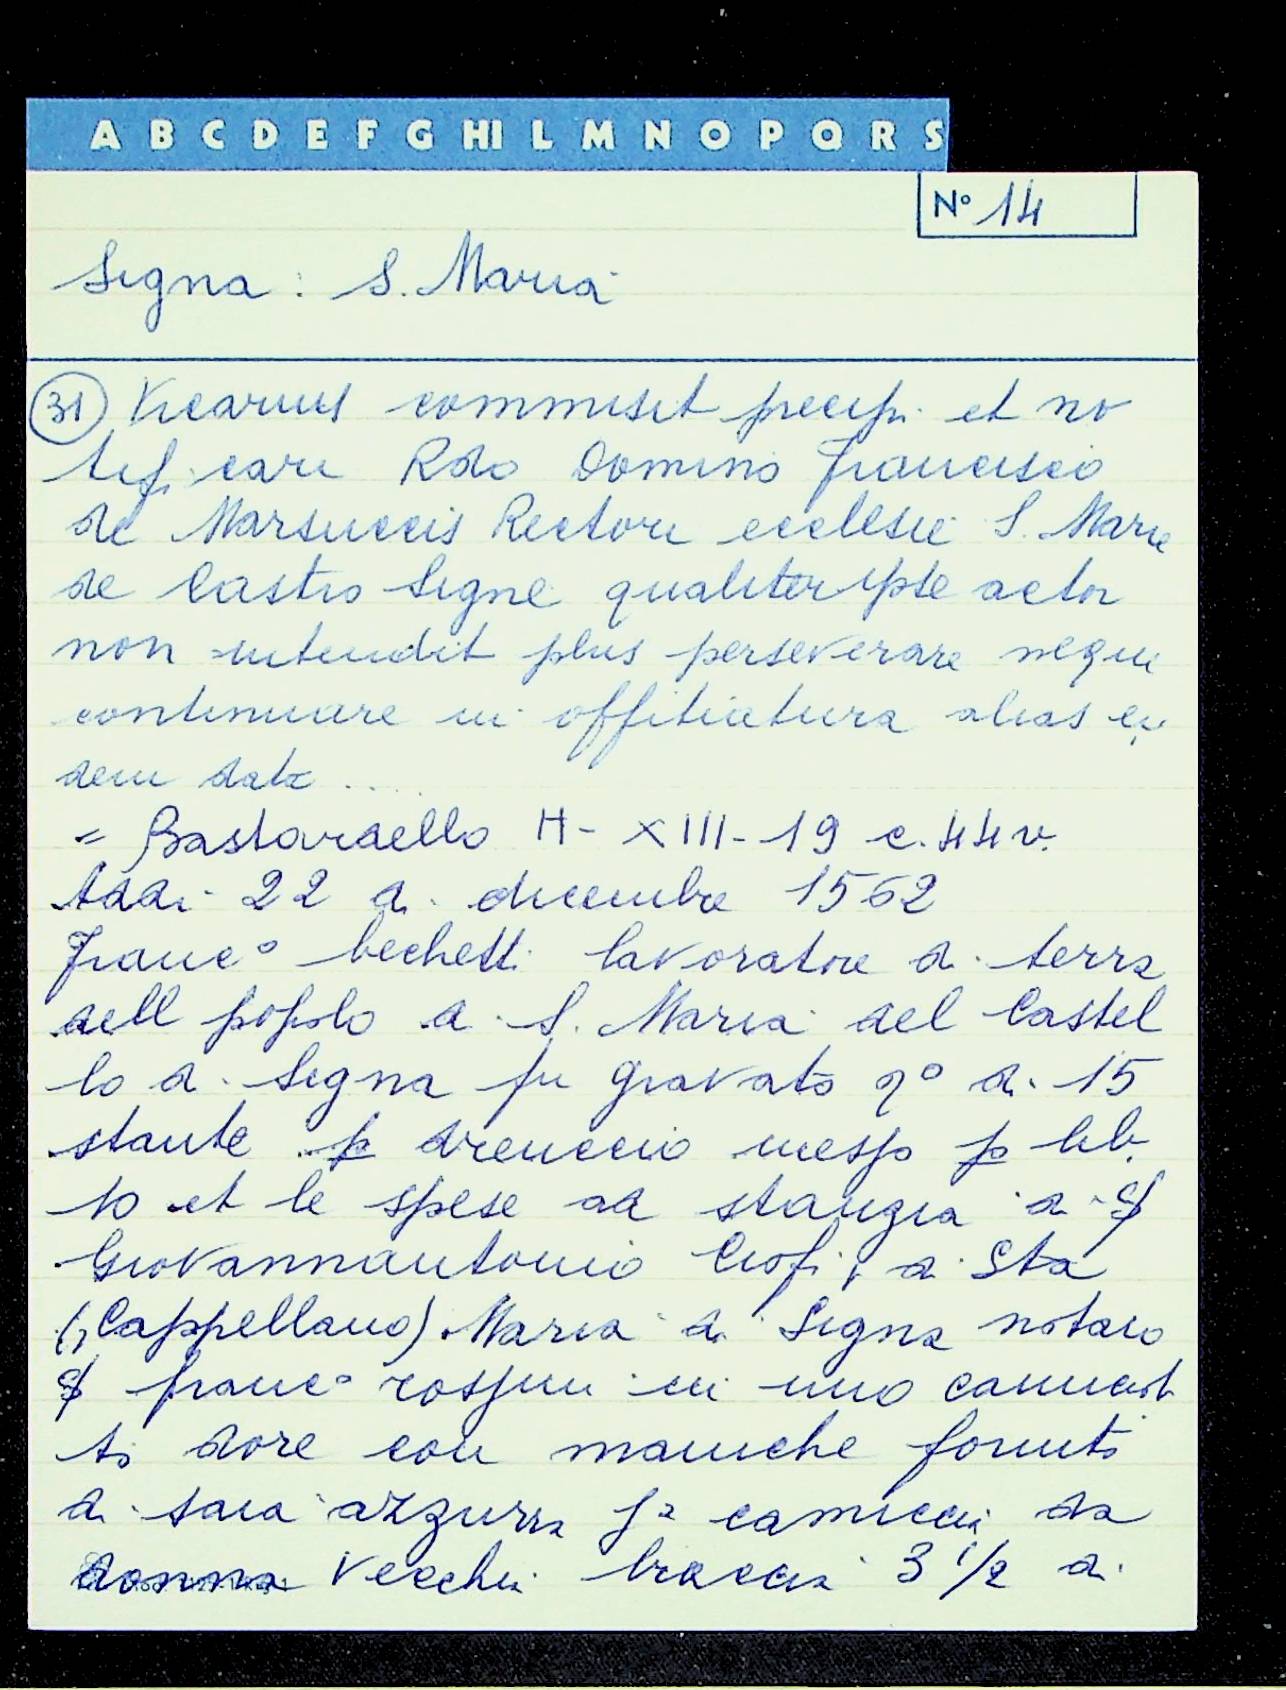 A B C D E F G HI L M N O P Q R S
Nº 14
Signa: S. Maria
31 Vicarius commisit precipi et no
tificari Rdo Domino Francisco
de Marsuccis Rectori ecclesie S. Marie
de Castro Signe qualiter ipse actor
non intendit plus perseverare neque
continuare in offitiatura alias ei
dem data ....
= Bastardello H - XIII - 19 c. 44 v.
Addi 22 di dicembre 1562
Franc° bechetti lavoratore di terra
dell popolo di S. Maria del Castel
lo di Signa fu gravato q° di 15
stante p drenccio messo p lib.
10 et le spese ad stanzia di S
Giovannantonio Ciofi, di Sta
(, Cappellano) Maria di Signa notaio
S franc° rospini in uno
to dore con maniche fornito
di saia azzurra ja camicia da
donna vecchia braccia 3 1/2 di